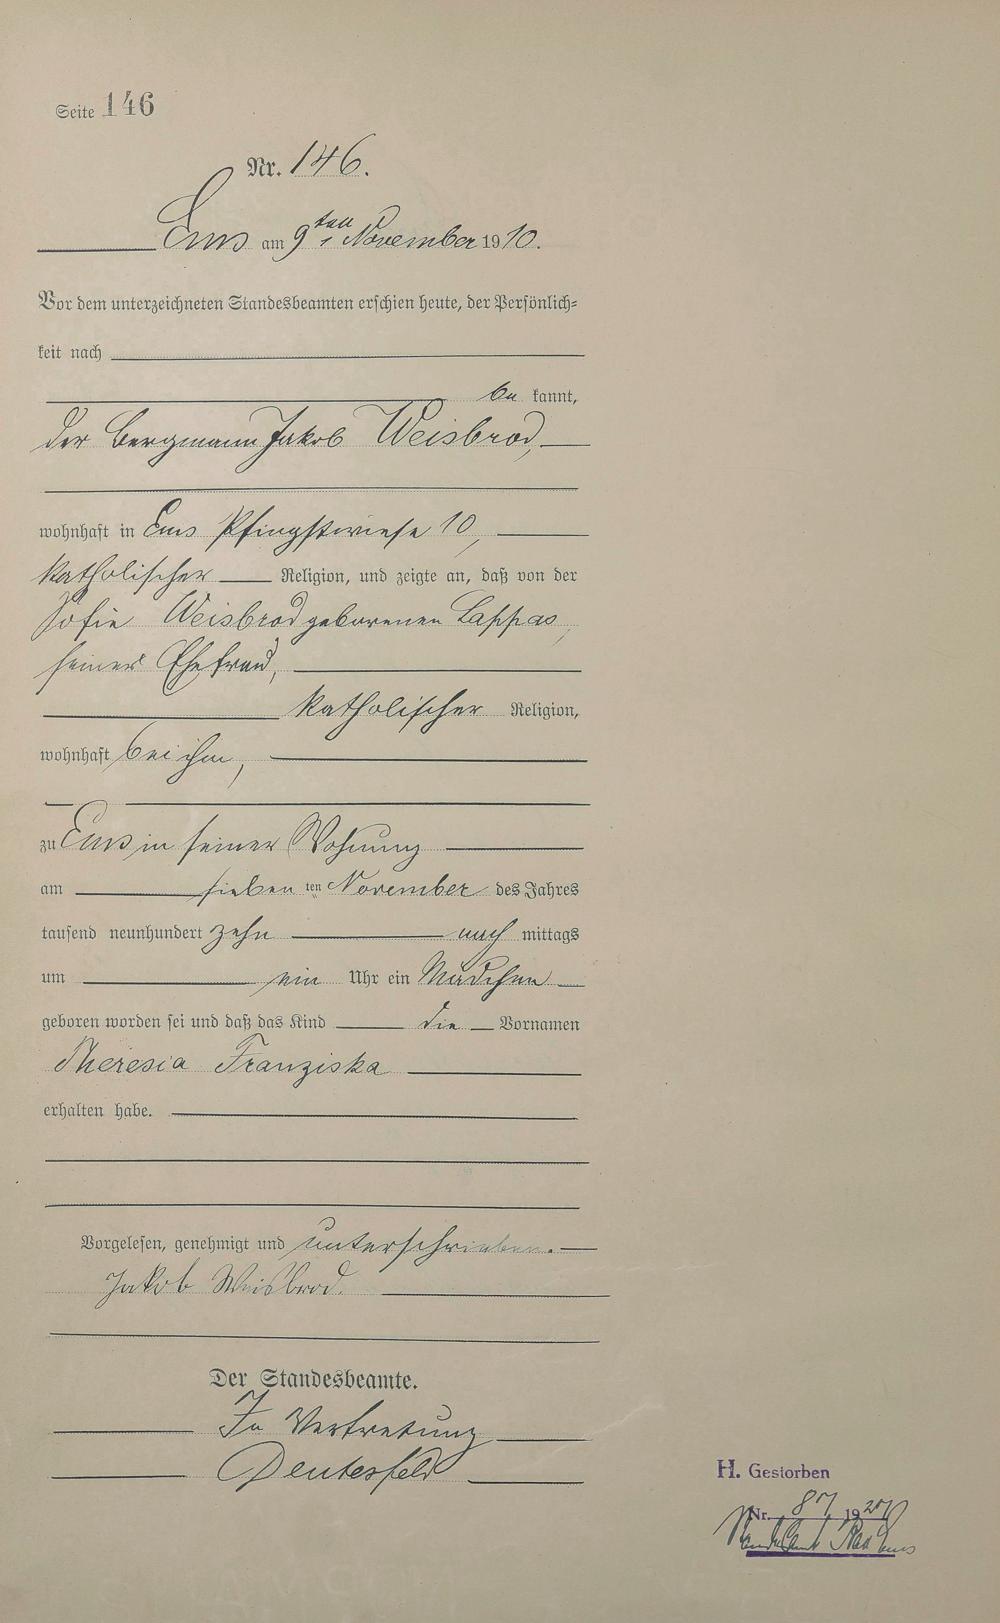 Seite 146
Nr. 146.
Ems am 9ten November 1910.
Vor dem unterzeichneten Standesbeamten erschien heute, der Persönlich-
keit nach
be kannt,
der Bergmann Jakob Weisbrod,
wohnhaft in Ems Pfingstwiese 10,
katholischer Religion, und zeigte an, daß von der
Sofie Weisbrod geborenen Lappas,
seiner Ehefrau,
katholischer Religion,
wohnhaft bei ihm,
zu Ems in seiner Wohnung
am sieben ten November des Jahres
tausend neunhundert zehn nach mittags
um ein Uhr ein Mädchen
geboren worden sei und daß das Kind die Vornamen
Theresia Franziska
erhalten habe.
Vorgelesen, genehmigt und unterschrieben.
Jakob Weisbrod.
Der Standesbeamte.
In Vertretung
Deutesfeld
H. Gestorben
Nr. 87 19
Standesamt Bad Ems